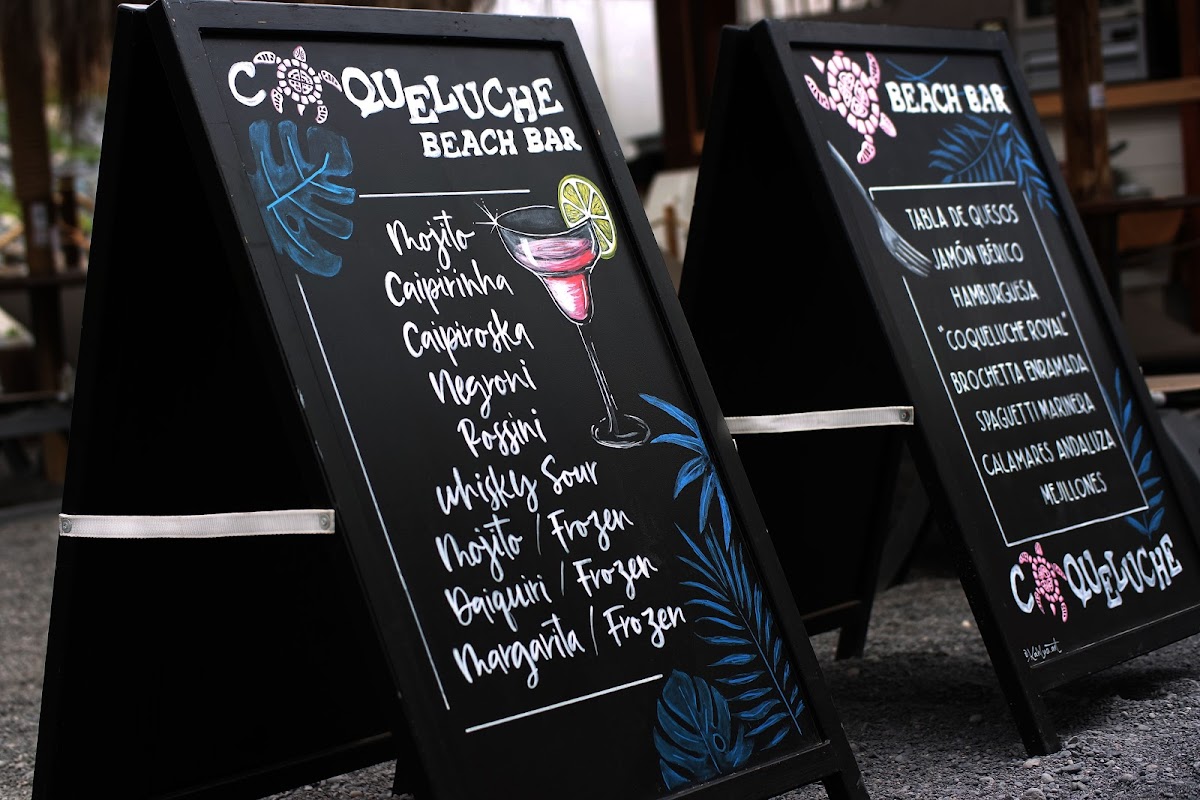 COQUELUCHE
BEACH BAR
Mojito
Caipirinha
Caipiroska
Negroni
Rossini
Whisky Sour
Mojito / Frozen
Daiquiri / Frozen
Margarita / Frozen
BEACH BAR
TABLA DE QUESOS
JAMÓN IBÉRICO
HAMBURGUESA
"COQUELUCHE ROYAL"
BROCHETTA ENRAMADA
SPAGUETTI MARINERA
CALAMARES ANDALUZA
MEJILLONES
COQUELUCHE